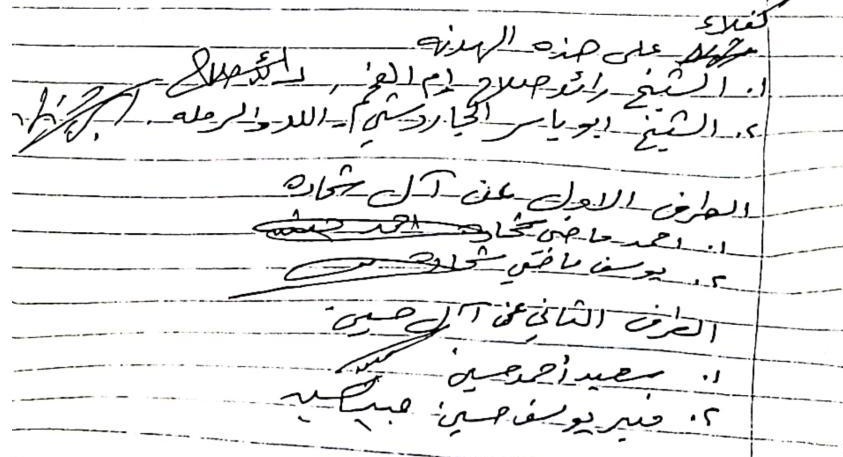 كفلاء
على هذه الهدنه
١. الشيخ رائد صلاح ام الفحم رائد صلاح
٢. الشيخ ابو ياسر الجاروشي اللد والرمله.
الطرف الاول عن آل شحاده
١. احمد ماضي شحاده احمد
٢. يوسف ماضي شحاده
الطرف الثاني عن آل حسين
١. سعيد أحمد حسين
٢. منير يوسف حسين